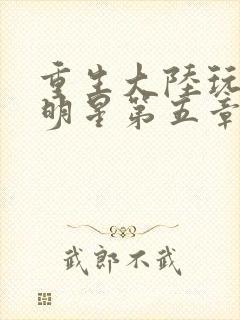 重生大陸玩
明星第五章
武郎不武